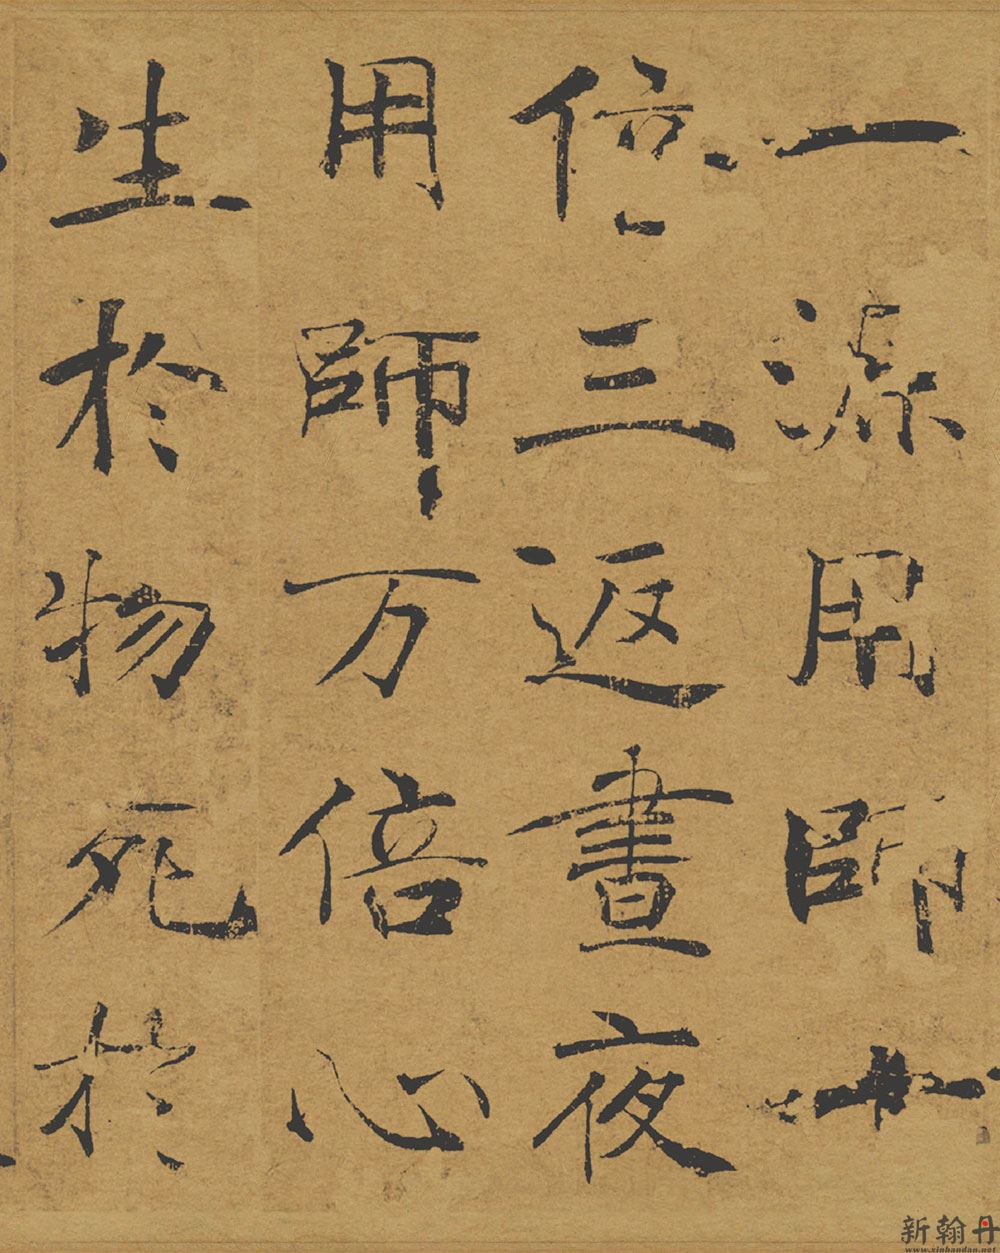 一源用師十
倍三返晝夜
用師万倍心
生於物死於
新翰丹
www.xinhandan.net